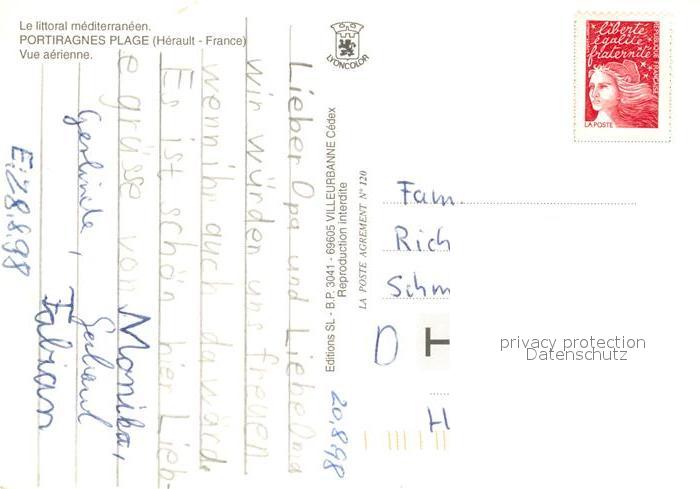 Le littoral méditerranéen.
PORTIRAGNES PLAGE (Hérault - France)
Vue aérienne.
LYONCOLOR
liberté
égalité
fraternité
RÉPUBLIQUE FRANÇAISE
LA POSTE
Lieber Opa und Liebe Oma
wir würden uns freuen
wenn ihr auch da wärd.
Es ist schön hier Lieb-
e grüsse von Monika,
Gerlinde, Gerhard
Fabian
E: 28.8.98
Editions SL - B.P. 3041 - 69605 VILLEURBANNE Cédex
Reproduction interdite
LA POSTE AGREMENT N° 120
20.8.98
Fam.
Rich
Schm
D
T
H
privacy protection
Datenschutz